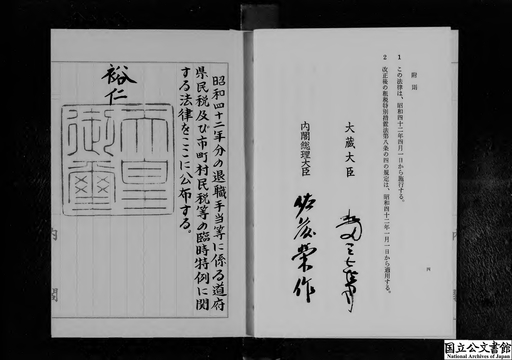 附則
1 この法律は、昭和四十二年四月一日から施行する。
2 改正後の租税特別措置法第八条の四の規定は、昭和四十二年一月一日から適用する。
大蔵大臣
内閣総理大臣 佐藤榮作
六
昭和四十二年分の退職手当等に係る道府
県民税及び市町村民税等の臨時特例に関
する法律をここに公布する。
裕仁
天皇
御璽
内
閣
国立公文書館
National Archives of Japan